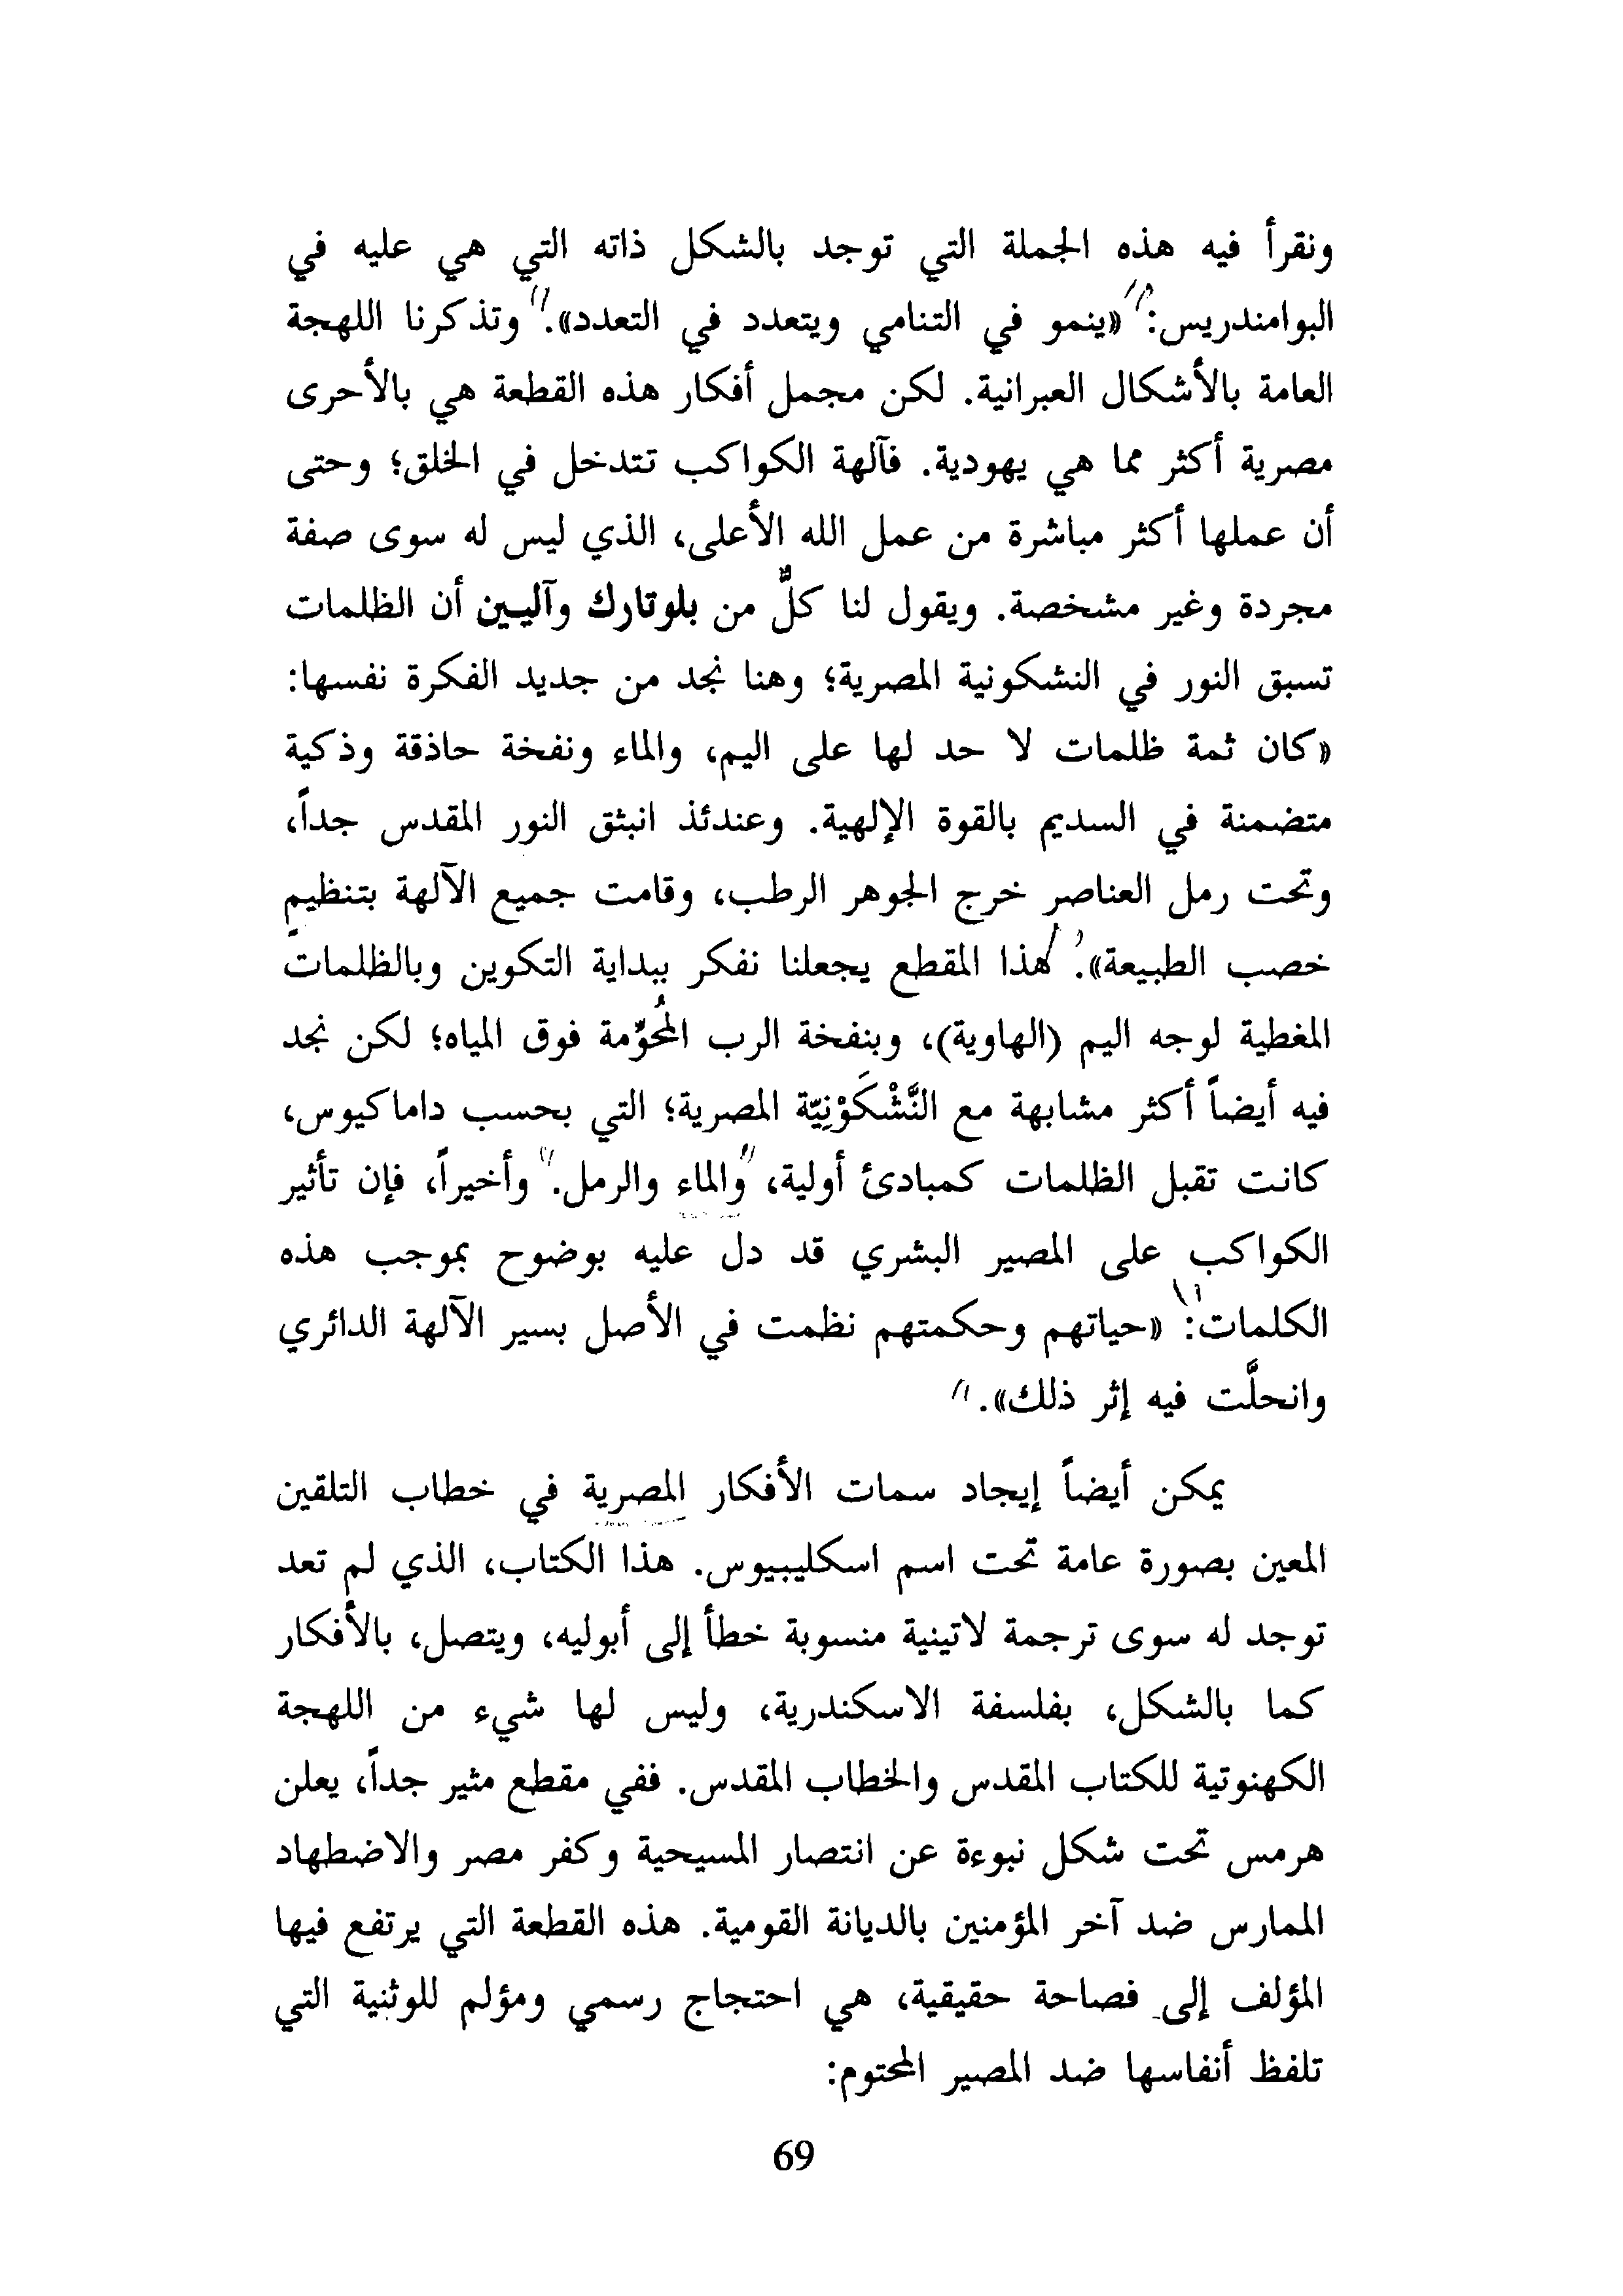 ونقرأ فيه هذه الجملة التي توجد بالشكل ذاته التي هي عليه في
البوامندريس: «ينمو في التنامي ويتعدد في التعدد». وتذكرنا اللهجة
العامة بالأشكال العبرانية. لكن مجمل أفكار هذه القطعة هي بالأحرى
مصرية أكثر مما هي يهودية. فآلهة الكواكب تتدخل في الخلق؛ وحتى
أن عملها أكثر مباشرة من عمل الله الأعلى، الذي ليس له سوى صفة
مجردة وغير مشخصة. ويقول لنا كلٌّ من بلوتارك وآليين أن الظلمات
تسبق النور في النشكونية المصرية؛ وهنا نجد من جديد الفكرة نفسها:
«كان ثمة ظلمات لا حد لها على اليم، والماء ونفخة حاذقة وذكية
متضمنة في السديم بالقوة الإلهية. وعندئذ انبثق النور المقدس جداً،
وتحت رمل العناصر خرج الجوهر الرطب، وقامت جميع الآلهة بتنظيم
خصب الطبيعة». هذا المقطع يجعلنا نفكر ببداية التكوين وبالظلمات
المغطية لوجه اليم (الهاوية)، وبنفخة الرب المُحوِّمة فوق المياه؛ لكن نجد
فيه أيضاً أكثر مشابهة مع النَّشْكَوْنِيّة المصرية؛ التي بحسب داماكيوس،
كانت تقبل الظلمات كمبادئ أولية، والماء والرمل. وأخيراً، فإن تأثير
الكواكب على المصير البشري قد دل عليه بوضوح بموجب هذه
الكلمات: «حياتهم وحكمتهم نظمت في الأصل بسير الآلهة الدائري
وانحلَّت فيه إثر ذلك».
يمكن أيضاً إيجاد سمات الأفكار المصرية في خطاب التلقين
المعين بصورة عامة تحت اسم اسكليبيوس. هذا الكتاب، الذي لم تعد
توجد له سوى ترجمة لاتينية منسوبة خطأ إلى أبوليه، ويتصل، بالأفكار
كما بالشكل، بفلسفة الاسكندرية، وليس لها شيء من اللهجة
الكهنوتية للكتاب المقدس والخطاب المقدس. ففي مقطع مثير جداً، يعلن
هرمس تحت شكل نبوءة عن انتصار المسيحية وكفر مصر والاضطهاد
الممارس ضد آخر المؤمنين بالديانة القومية. هذه القطعة التي يرتفع فيها
المؤلف إلى فصاحة حقيقية، هي احتجاج رسمي ومؤلم للوثنية التي
تلفظ أنفاسها ضد المصير المحتوم:
69